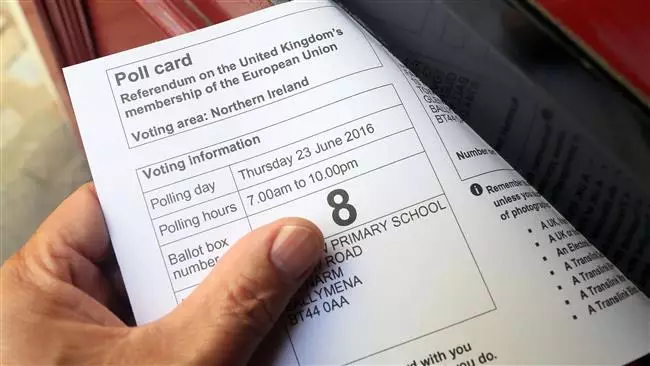 Poll card
Referendum on the United Kingdom's
membership of the European Union
Voting area: Northern Ireland
Voting information
Polling day Thursday 23 June 2016
Polling hours 7.00am to 10.00pm
Ballot box
number
8
PRIMARY SCHOOL
ROAD
BT44 0AA
BT44
Number on
i Remember
unless you
of photograph
A UK
A UK or
An Elector
A Translink
A Translink
A Translink
card with you
you do.